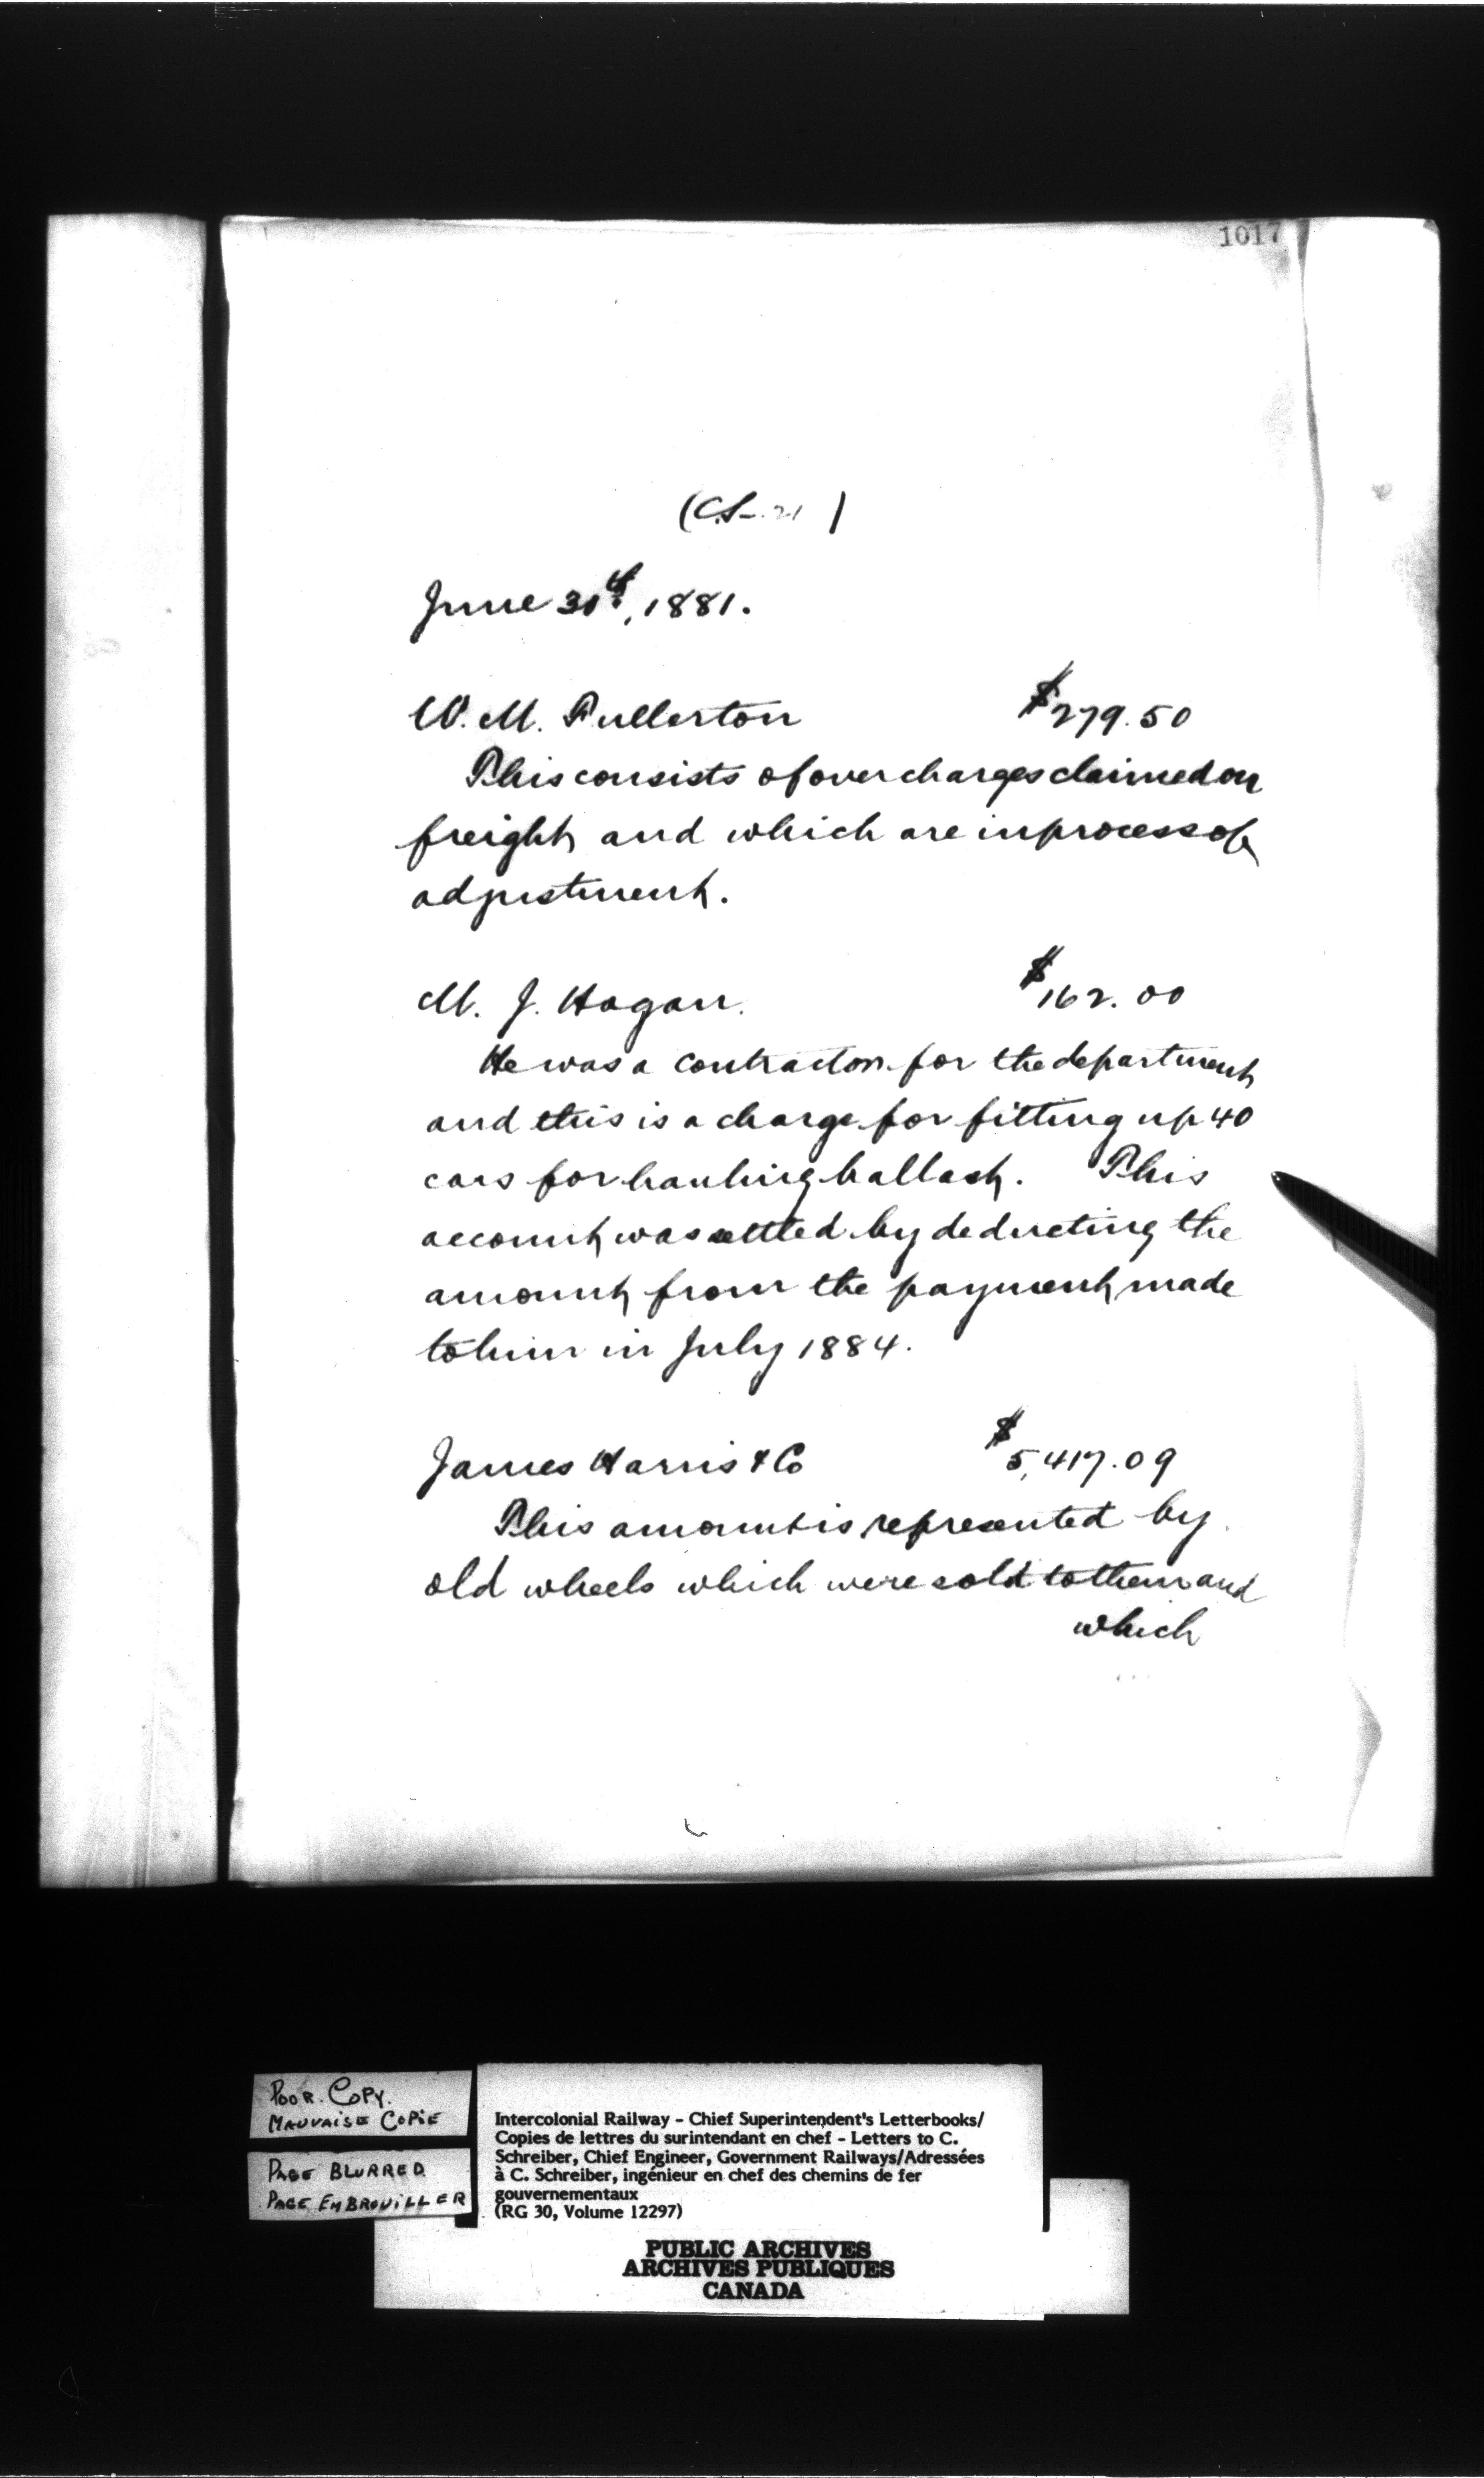 1017
(C.S. 21)
June 30th, 1881.
W. M. Fullerton $279.50
This consists of overcharges claimed on
freight and which are in process of
adjustment.
M. J. Hogan. $162.00
He was a contractor for the department
and this is a charge for fitting up 40
cars for hauling ballast. This
account was settled by deducting the
amount from the payment made
to him in July 1884.
James Harris & Co $5,417.09
This amount is represented by
old wheels which were sold to them and
which
POOR. COPY.
MAUVAISE COPIE
PAGE BLURRED
PAGE EMBROUILLER
Intercolonial Railway - Chief Superintendent's Letterbooks/
Copies de lettres du surintendant en chef - Letters to C.
Schreiber, Chief Engineer, Government Railways/Adressées
à C. Schreiber, ingénieur en chef des chemins de fer
gouvernementaux
(RG 30, Volume 12297)
PUBLIC ARCHIVES
ARCHIVES PUBLIQUES
CANADA